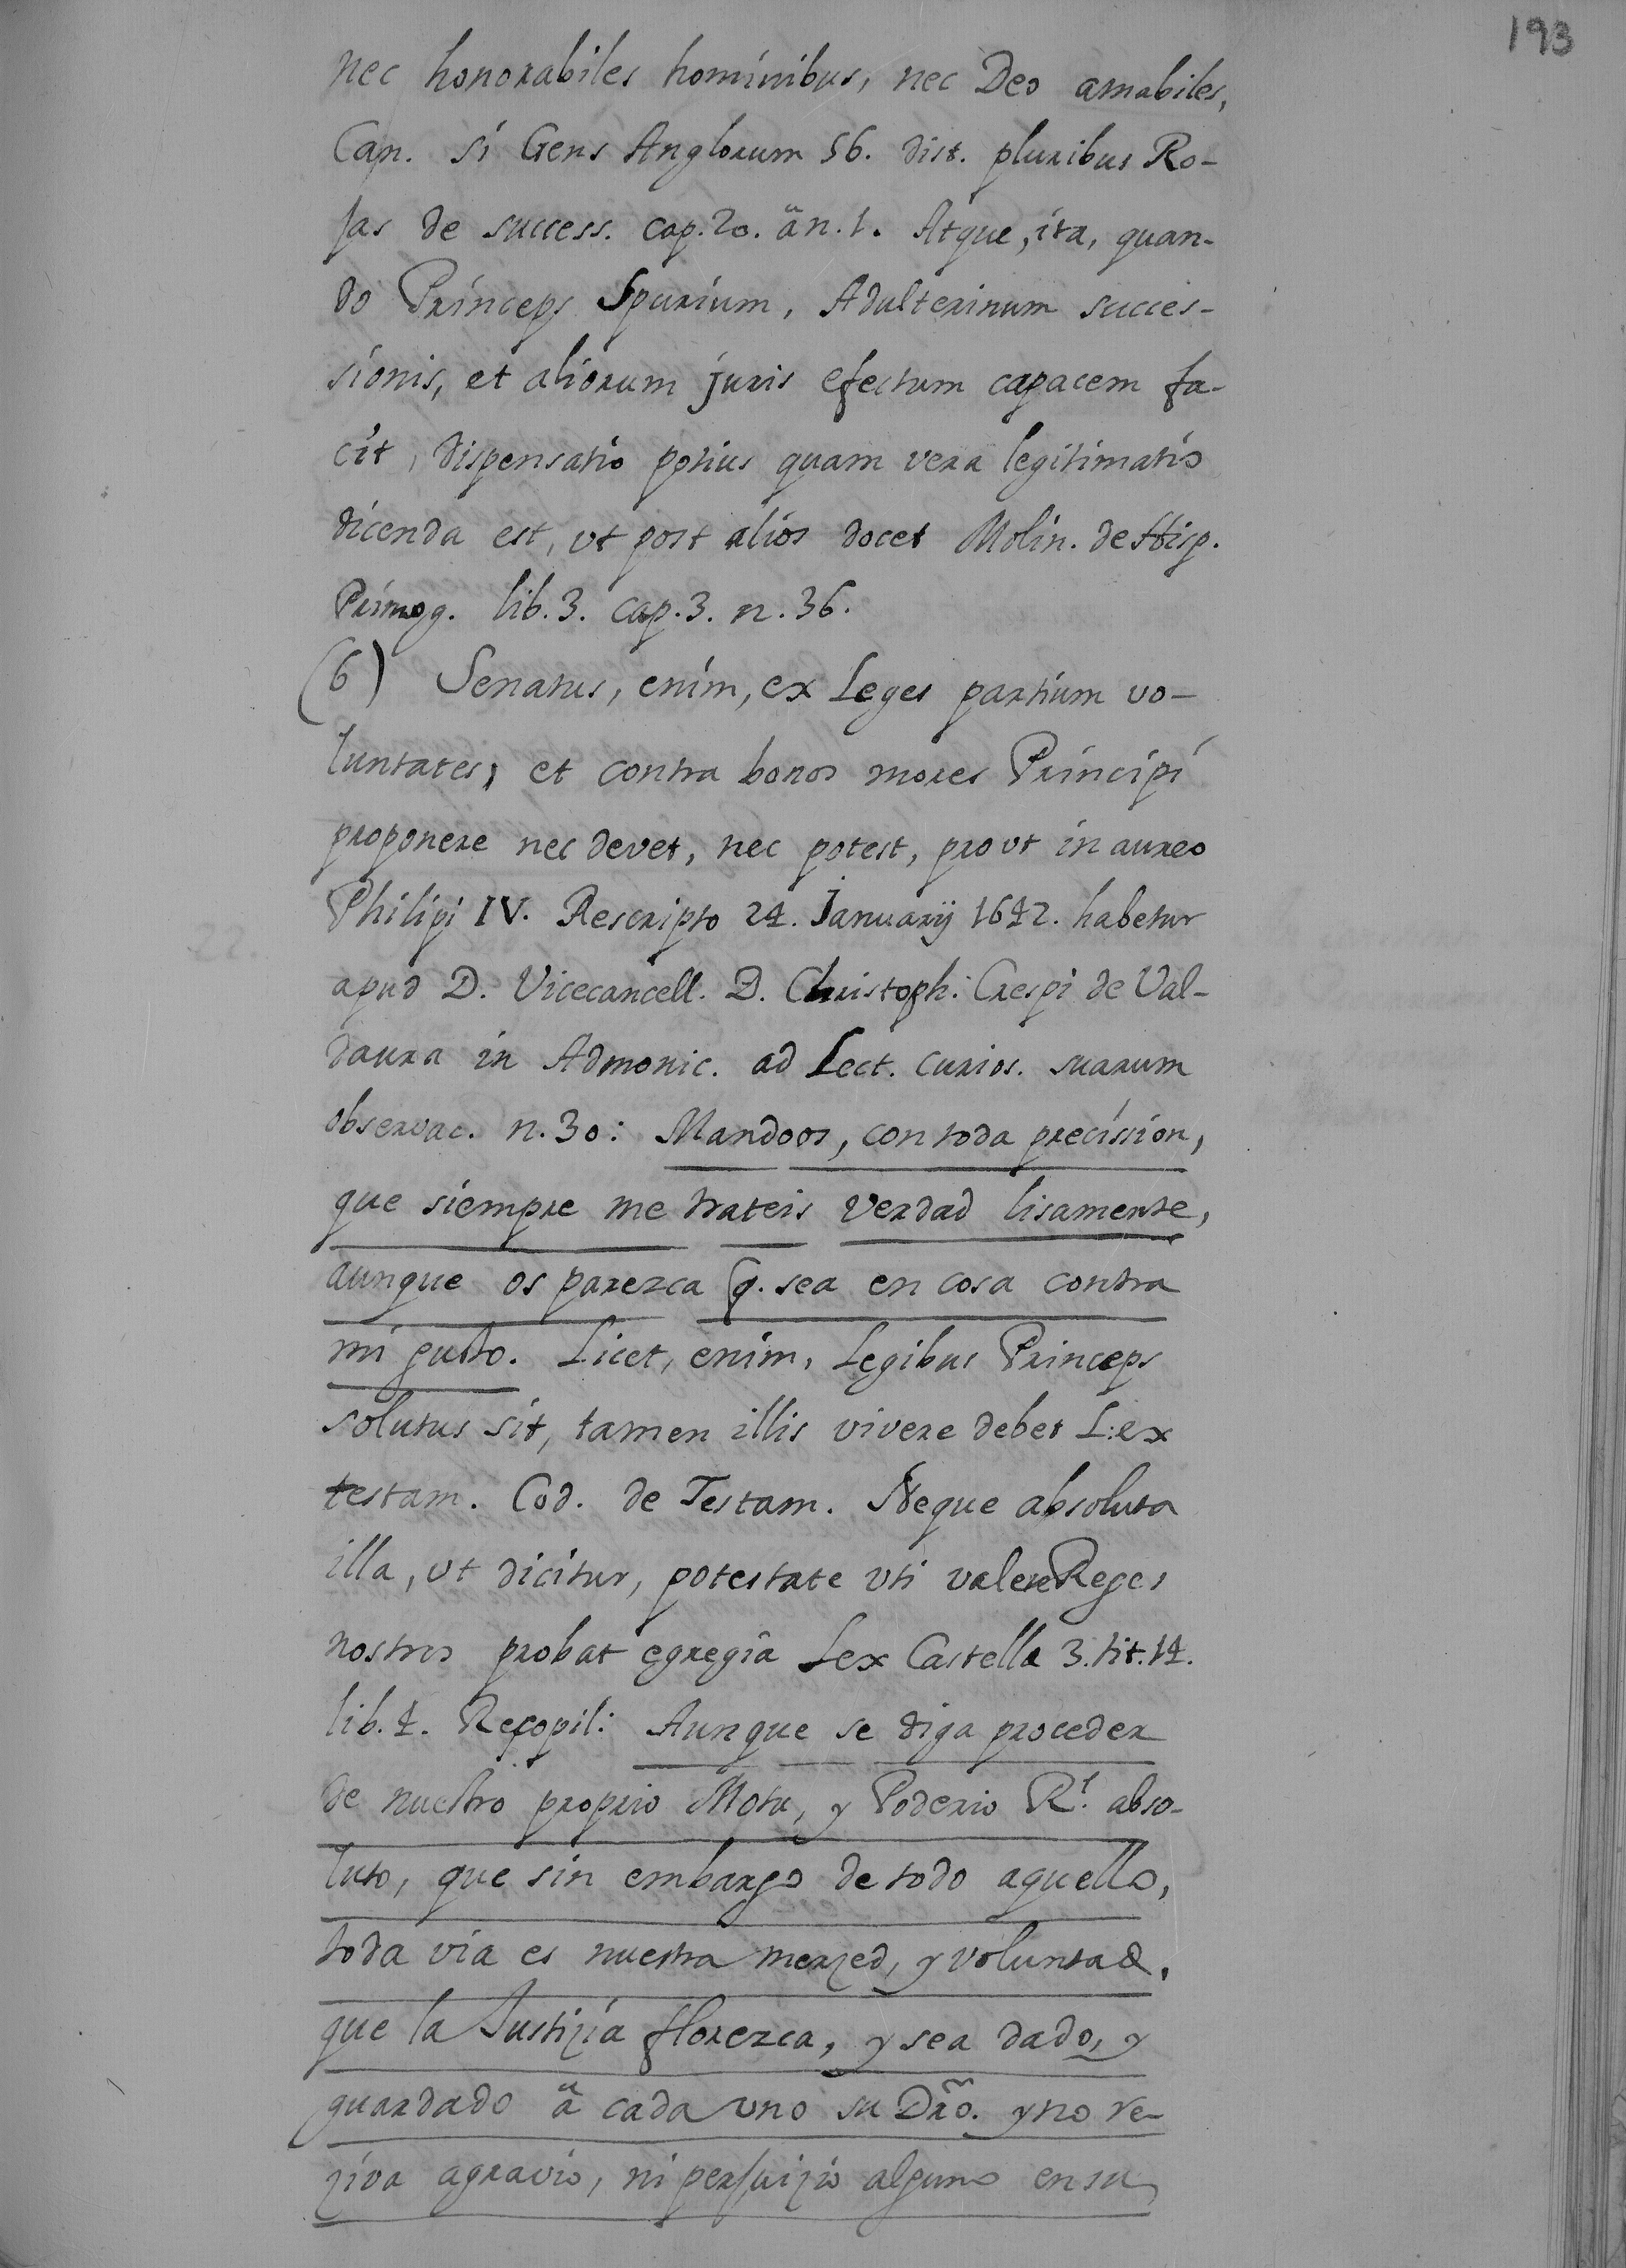 193
nec honorabiles hominibus, nec Deo amabiles,
Cap. si Gens Anglorum 56. dist. pluribus Ro-
jas de success. cap. 20. â n. 1. Atque, ita, quan-
do Princeps Spurium, Adulterinum succes-
sionis, et aliorum juris efectum capacem fa-
cit, dispensatio potius quam vera legitimatio
dicenda est, ut post alios docet Molin. de Hisp.
Primog. lib. 3. cap. 3. n. 36.
(6) Senatus, enim, ex Leges partium vo-
luntates, et contra bonos mores Principi
proponere nec devet, nec potest, prout in aureo
Philipi IV. Rescripto 24. Januarij 1642. habetur
apud D. Vicecancell. D. Christoph. Crespi de Val-
daura in Admonic. ad Lect. curios. suarum
observac. n. 30: Mandoos, con toda precission,
que siempre me trateis verdad lisamente,
aunque os parezca q. sea en cosa contra
mi gusto. Licet, enim, Legibus Princeps
solutus sit, tamen illis vivere debet L. ex
testam. Cod. de Testam. Neque absoluta
illa, ut dicitur, potestate uti valere Reges
nostros probat egregia Lex Castella 3. tit. 14.
lib. 4. Recopil: Aunque se diga proceder
de nuestro proprio Motu, y Poderio Rl. abso-
luto, que sin embargo de todo aquello,
toda via es nuestra merzed, y voluntad,
que la Justizia florezca, y sea dado, y
guardado â cada uno su Dro. y no re-
ziva agravio, ni perjuizio alguno en su